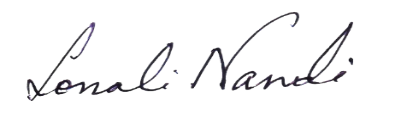 Sonali Nandi